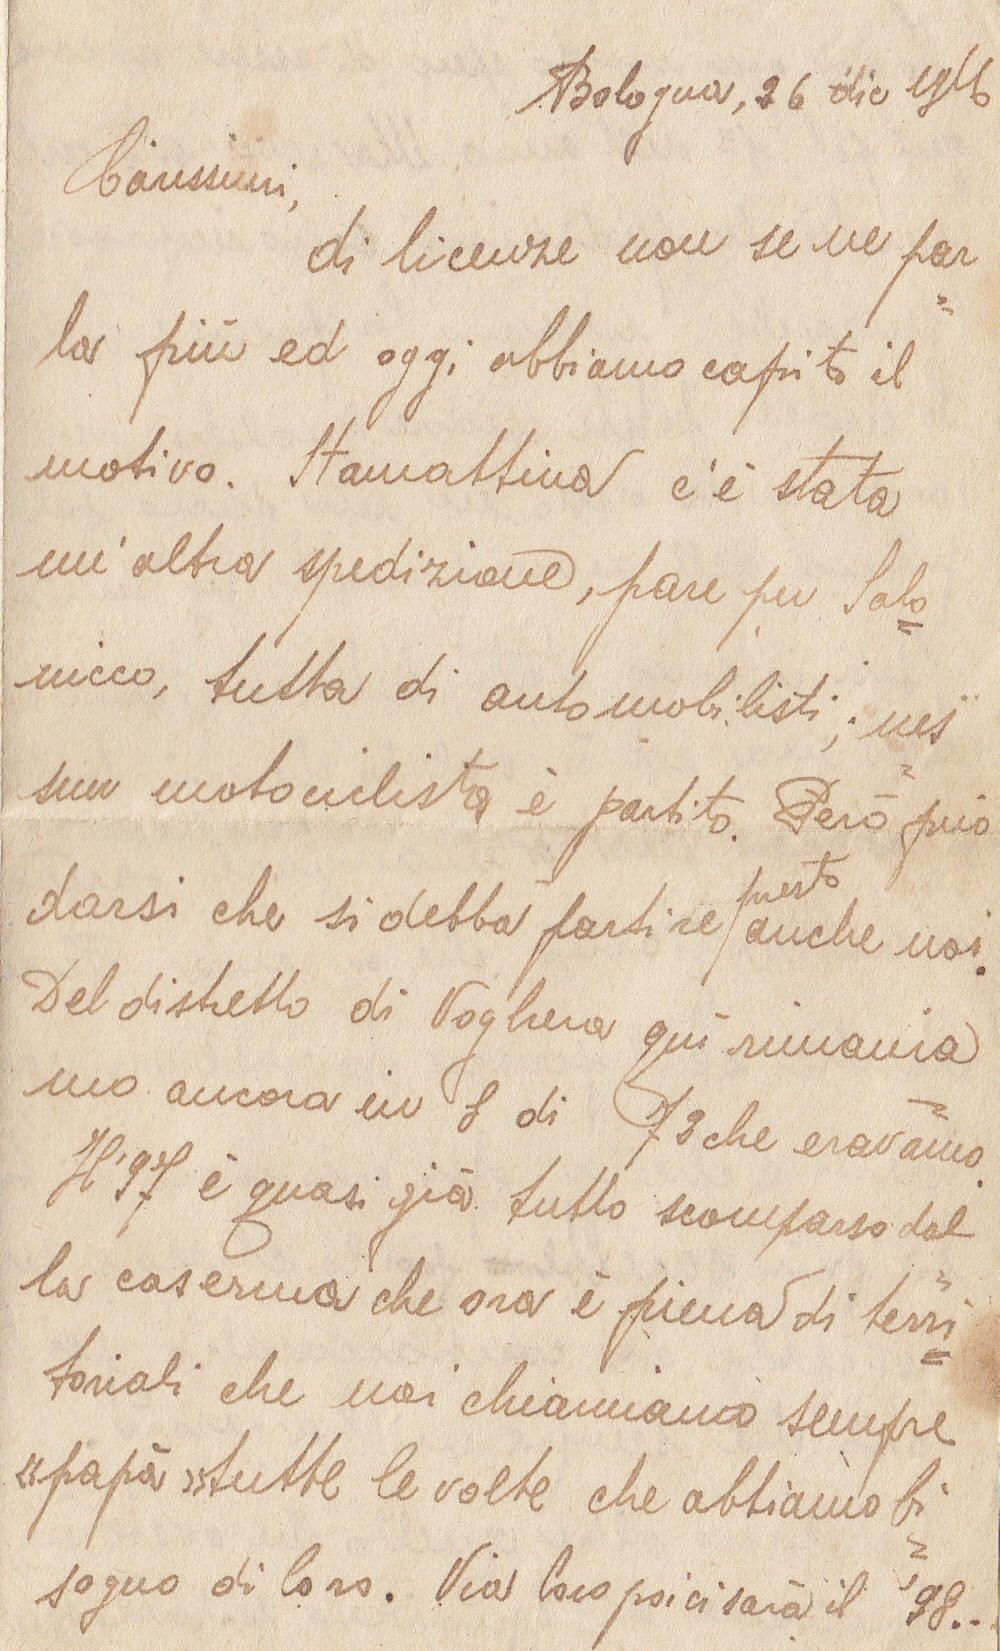 Bologna, 26 dic 1916
Carissimi,
di licenze non se ne par=
la più ed oggi abbiamo capito il
motivo. Stamattina c'è stata
un'altra spedizione, pare per Salo=
nicco, tutta di automobilisti; nes=
sun motociclista è partito. Però può
darsi che si debba partire presto anche noi.
Del distretto di Voghera qui rimania=
mo ancora in 8 di 72 che eravamo.
Il '97 è quasi già tutto scomparso dal
la caserma che ora è piena di terri=
toriali che noi chiamiamo sempre
"papà" tutte le volte che abbiamo bi=
sogno di loro. Via loro poi ci sarà il '98..